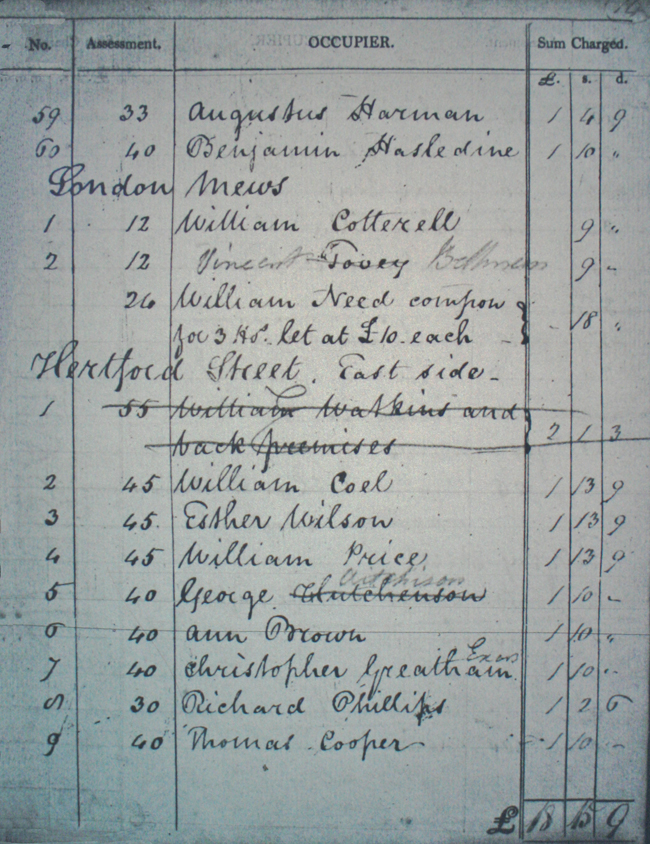 No. Assessment. OCCUPIER. Sum Charged.
£. s. d.
59 33 Augustus Harman 1 4 9
60 40 Benjamin Hasledine 1 10 "
London Mews
1 12 William Cotterell 9 "
2 12 Vincent Tovey 9 -
24 William Need compon
for 3 Hos. let at £10 each - 18 "
Hertford Street. East side -
1 55 William Watkins and
back premises 2 1 3
2 45 William Coel 1 13 9
3 45 Esther Wilson 1 13 9
4 45 William Price 1 13 9
Aitchison
5 40 George Hutchenson 1 10 -
6 40 Ann Brown 1 10 "
7 40 Christopher Greatham Exors 1 10 -
8 30 Richard Phillips 1 2 6
9 40 Thomas Cooper 1 10 -
£ 18 15 9